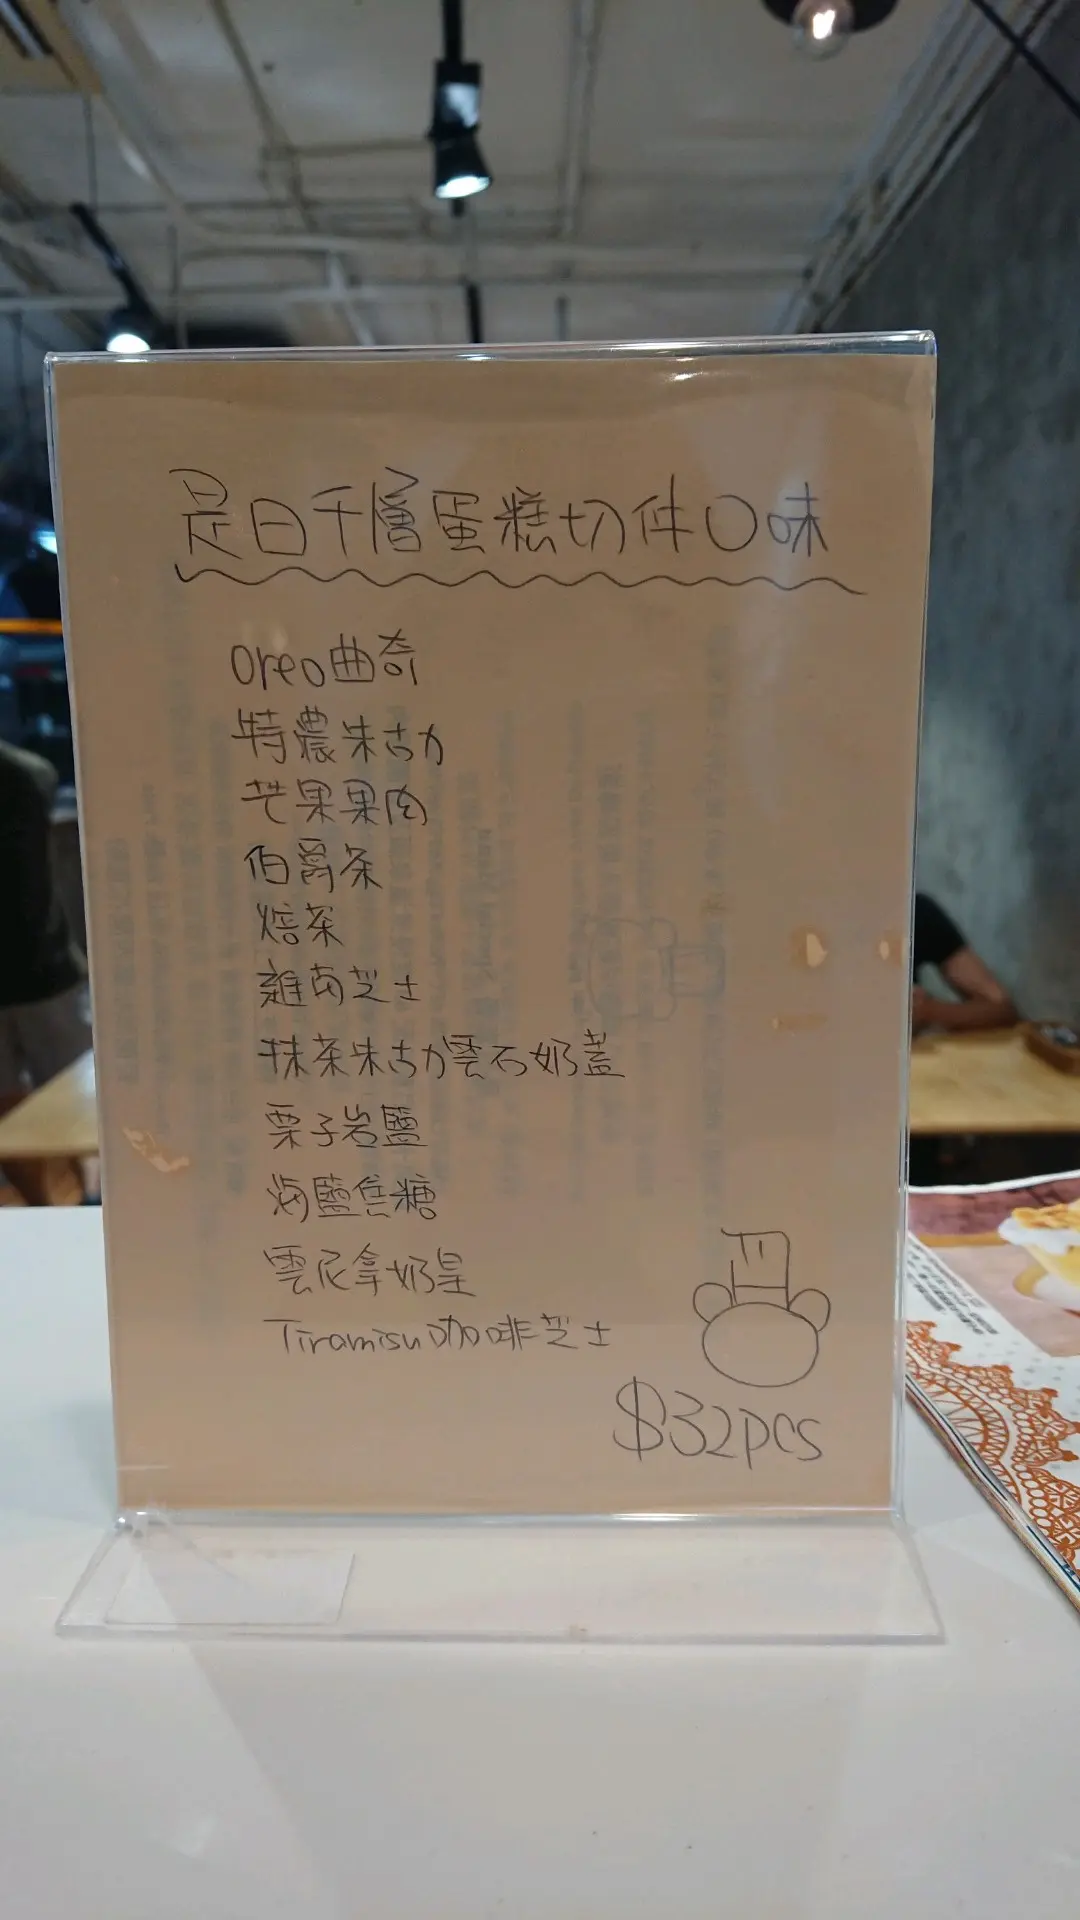 是日千層蛋糕切件口味
Oreo曲奇
特農朱古力
芒果果肉
伯爵茶
焙茶
雜莓芝士
抹茶朱古力雲石奶蓋
栗子岩鹽
海鹽焦糖
雲尼拿奶皇
Tiramisu咖啡芝士
$32pcs